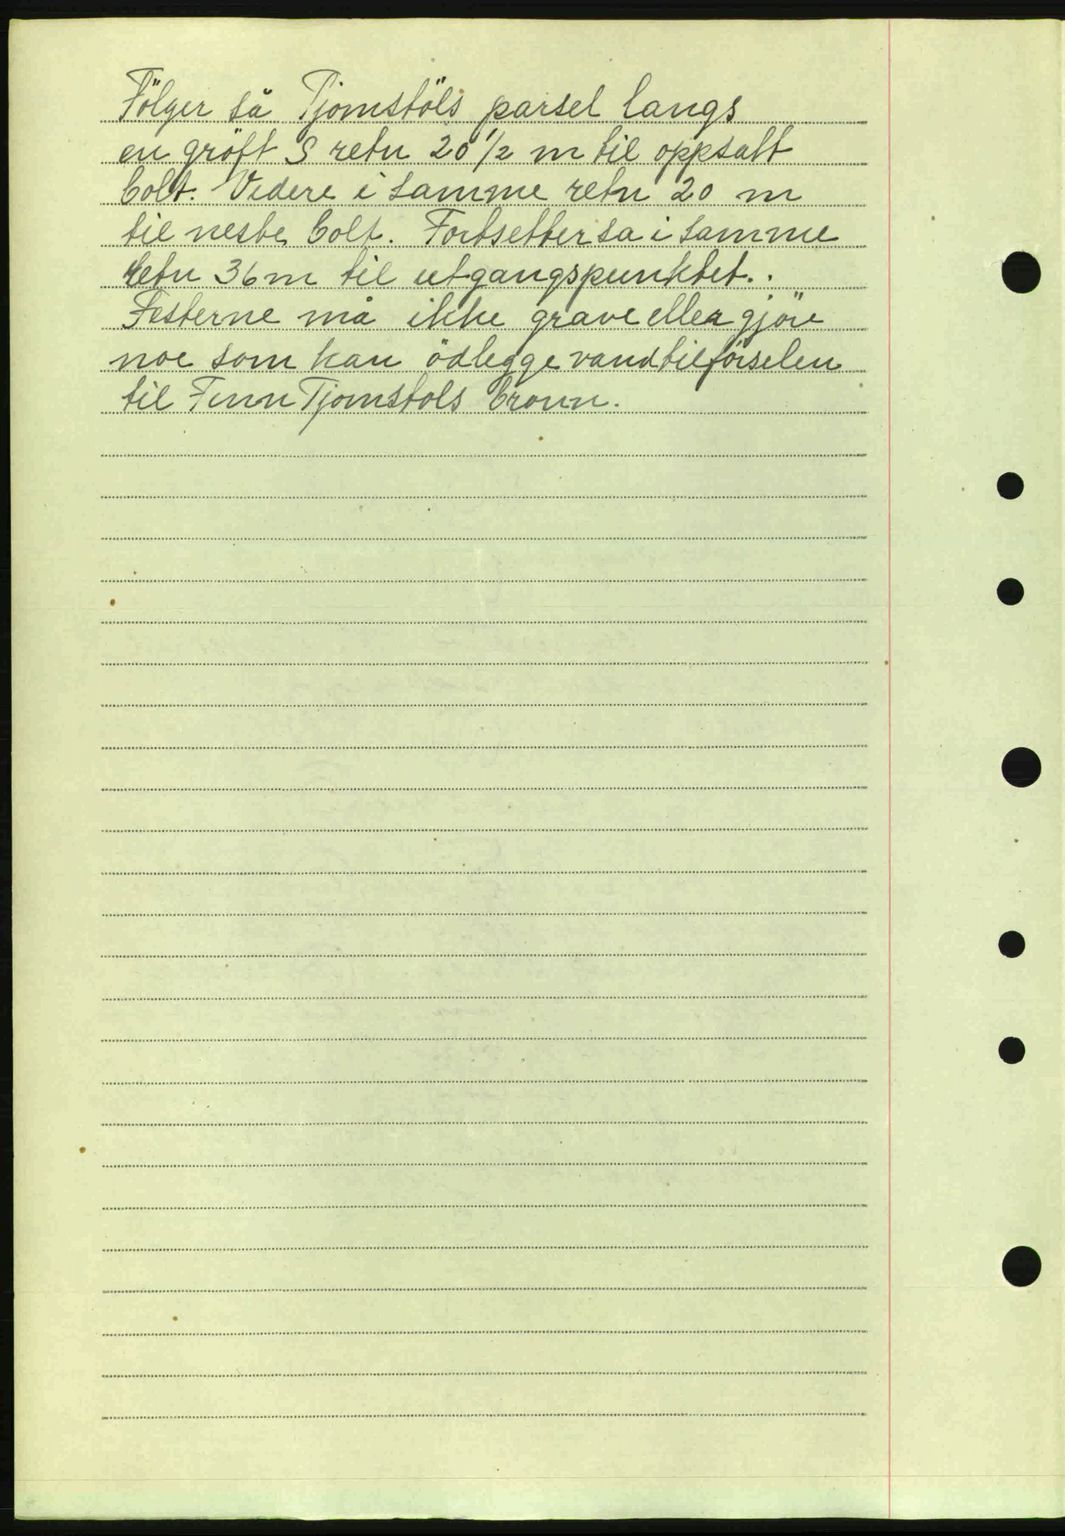 Fölger så Tjomstöls parsel langs
en gröft S retn 20 1/2 m til oppsatt
bolt. Videre i samme retn 20 m
til neste bolt. Fortsetter sa i samme
retn 36 m til utgangspunktet.
Festerne må ikke grave eller gjöre
noe som kan ödlegge vandtilförselen
til Finn Tjomstols bronn.